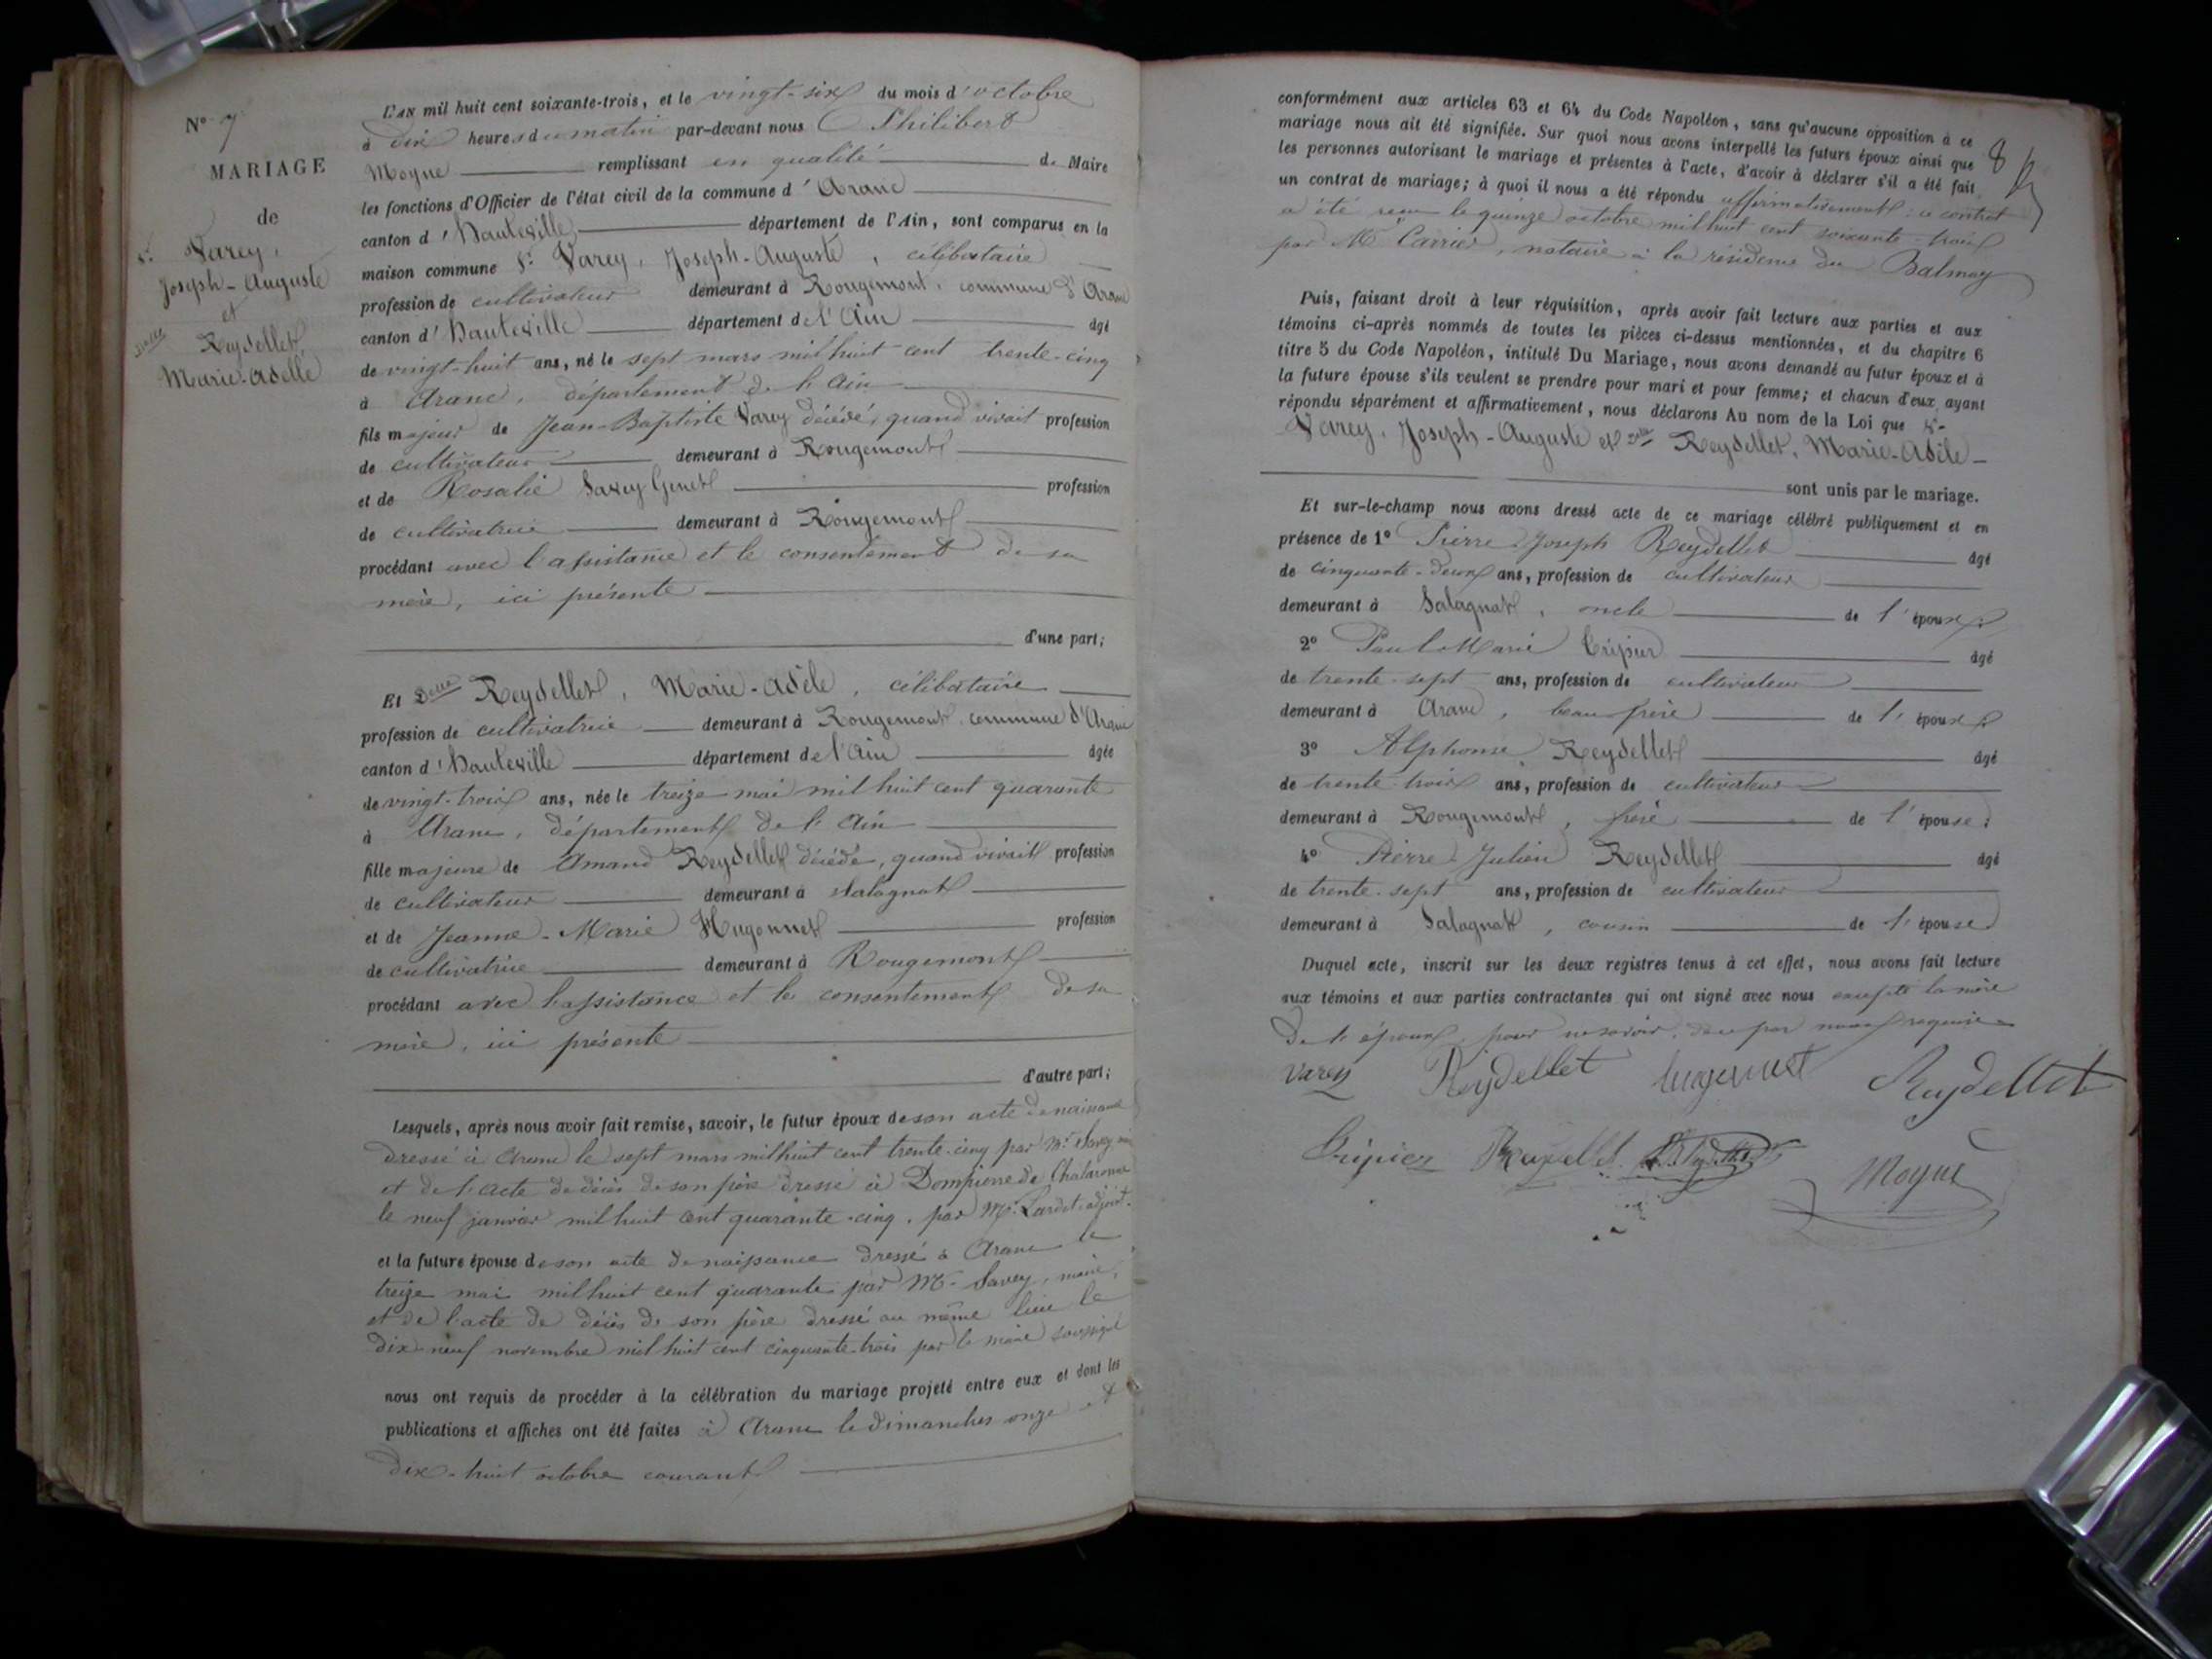 N° 7
MARIAGE
de
Sr. Varey,
Joseph-Auguste
et
Delle
Reydellet
Marie-Adèle
L'AN mil huit cent soixante-trois, et le vingt-six du mois d'octobre
à dix heures du matin par-devant nous Philibert
Moyne remplissant en qualité de Maire
les fonctions d'Officier de l'état civil de la commune d'Aranc
canton d'hauteville département de l'Ain, sont comparus en la
maison commune Sr. Varey, Joseph-Auguste, célibataire
profession de cultivateur demeurant à Rougemont, commune d'Aranc
canton d'hauteville département de l'Ain âgé
de vingt-huit ans, né le sept mars mil huit cent trente-cinq
à Aranc, département de l'Ain
fils majeur de Jean-Baptiste Varey décédé, quand vivait profession
de cultivateur demeurant à Rougemont
et de Rosalie Savey Genet profession
de cultivatrice demeurant à Rougemont
procédant avec l'assistance et le consentement de sa
mère, ici présente
d'une part;
Et Delle Reydellet, Marie-Adèle, célibataire
profession de cultivatrice demeurant à Rougemont, commune d'Aranc
canton d'hauteville département de l'Ain âgée
de vingt-trois ans, née le treize mai mil huit cent quarante
à Aranc, département de l'Ain
fille majeure de Amand Reydellet décédé, quand vivait profession
de cultivateur demeurant à Salagnat
et de Jeanne-Marie Hugonnet profession
de cultivatrice demeurant à Rougemont
procédant avec l'assistance et le consentement de sa
mère, ici présente
d'autre part;
Lesquels, après nous avoir fait remise, savoir, le futur époux de son acte de naissance
dressé à Aranc le sept mars mil huit cent trente-cinq par Mr. Savey
et de l'acte de décès de son père dressé à Dompierre de Chalaronne
le neuf janvier mil huit cent quarante-cinq, par Mr. Lardet adjoint.
et la future épouse de son acte de naissance dressé à Aranc le
treize mai mil huit cent quarante par Mr. Savey, maire,
et de l'acte de décès de son père dressé au même lieu le
dix-neuf novembre mil huit cent cinquante-trois par le maire soussigné
nous ont requis de procéder à la célébration du mariage projeté entre eux et dont les
publications et affiches ont été faites à Aranc le dimanches onze et
dix-huit octobre courant
conformément aux articles 63 et 64 du Code Napoléon, sans qu'aucune opposition à ce
mariage nous ait été signifiée. Sur quoi nous avons interpellé les futurs époux ainsi que
les personnes autorisant le mariage et présentes à l'acte, d'avoir à déclarer s'il a été fait
un contrat de mariage; à quoi il nous a été répondu affirmativement: ce contrat
a été reçu le quinze octobre mil huit cent soixante-trois
par Me Carrier, notaire à la résidence du Balmay
8
Puis, faisant droit à leur réquisition, après avoir fait lecture aux parties et aux
témoins ci-après nommés de toutes les pièces ci-dessus mentionnées, et du chapitre 6
titre 5 du Code Napoléon, intitulé Du Mariage, nous avons demandé au futur époux et à
la future épouse s'ils veulent se prendre pour mari et pour femme; et chacun d'eux ayant
répondu séparément et affirmativement, nous déclarons Au nom de la Loi que Sr.
Varey, Joseph-Auguste et Delle Reydellet, Marie-Adèle
sont unis par le mariage.
Et sur-le-champ nous avons dressé acte de ce mariage célébré publiquement et en
présence de 1° Pierre Joseph Reydellet âgé
de cinquante-deux ans, profession de cultivateur
demeurant à Salagnat, oncle de l'épouse;
2° Paul Marie Crépier âgé
de trente-sept ans, profession de cultivateur
demeurant à Aranc, beau-frère de l'épouse;
3° Alphonse Reydellet âgé
de trente-trois ans, profession de cultivateur
demeurant à Rougemont, frère de l'épouse;
4° Pierre Julien Reydellet âgé
de trente-sept ans, profession de cultivateur
demeurant à Salagnat, cousin de l'épouse
Duquel acte, inscrit sur les deux registres tenus à cet effet, nous avons fait lecture
aux témoins et aux parties contractantes qui ont signé avec nous excepté la mère
de l'époux, pour ne savoir, de ce par nous requise
Varey Reydellet hugonnet Reydellet
Crépier Reydellet Reydellet Moyne